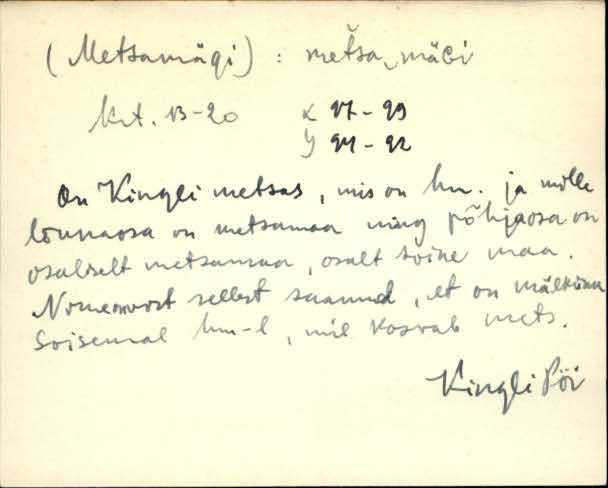 (Metsamägi) : metša‿mäGi
Krt. 13-20 x 97-99
y 91-92
On Kingli metsas, mis on hm. ja mille
lõunaosa on metsamaa ning põhjaosa on
osaliselt metsamaa, osalt soine maa.
sellest saanud, et on
Soisemal hm-l, mil kasvab mets.
Kingli Pöi